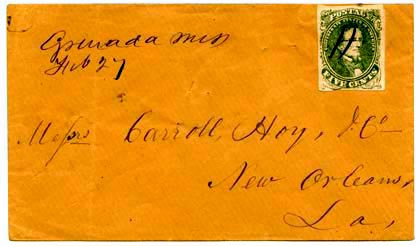 POSTAGE
Grenada Miss
Feb 27
FIVE CENTS
Messrs Carroll, Hoy, & Co
New Orleans,
La,